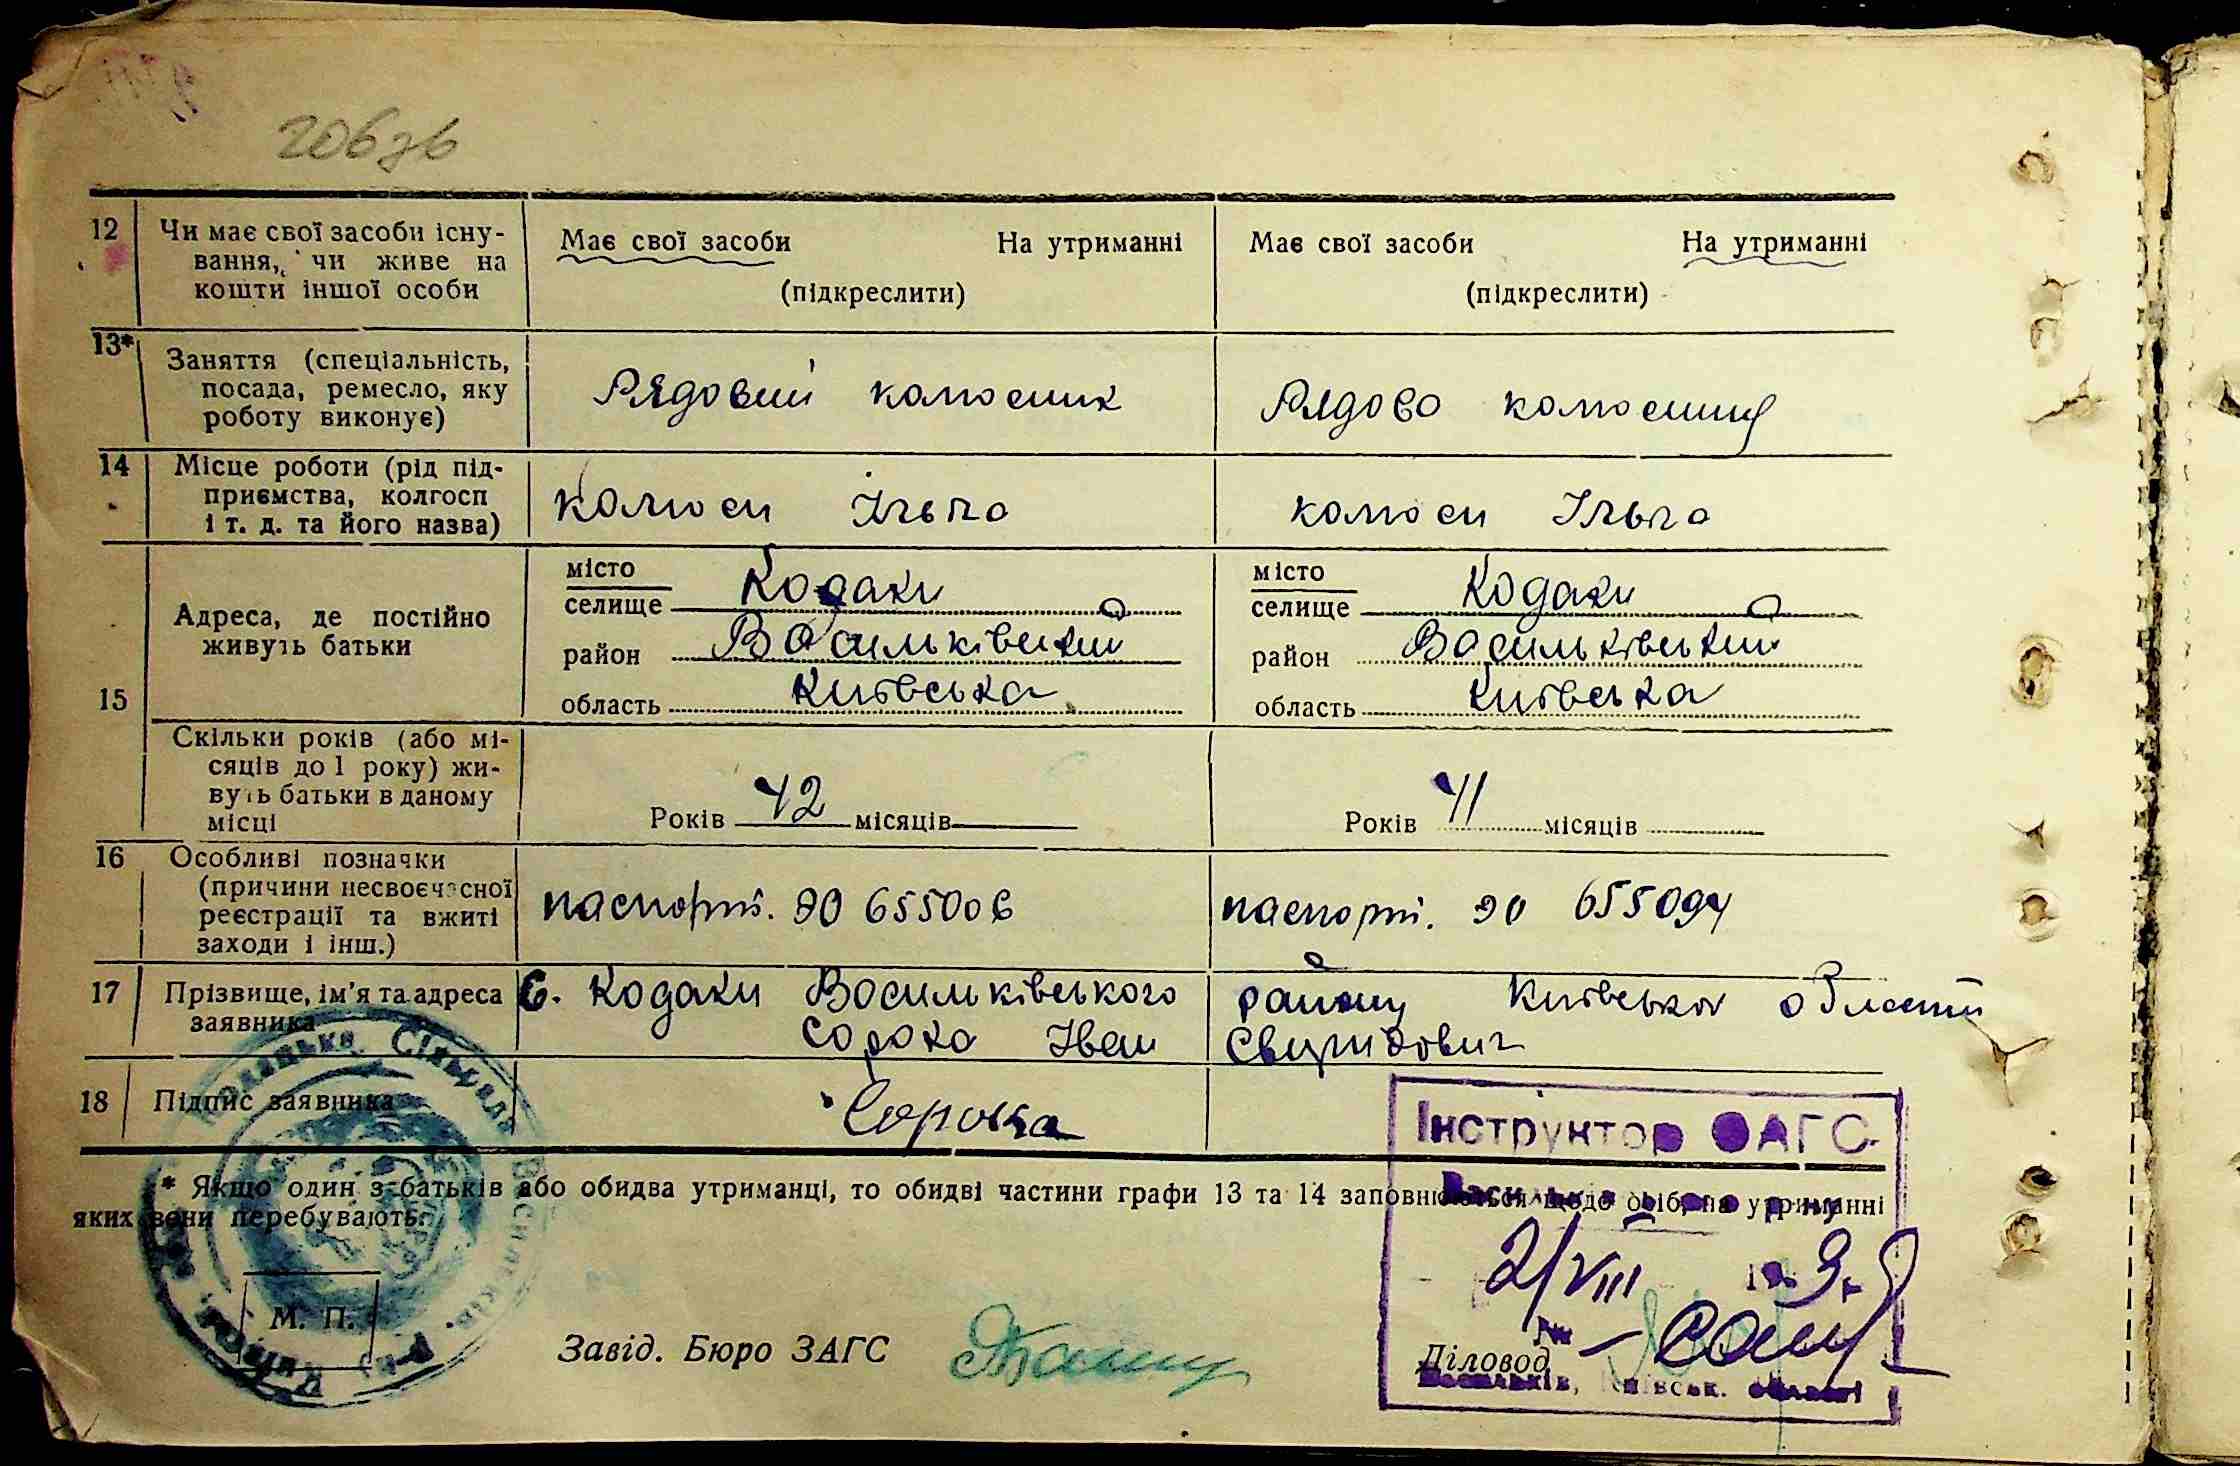 206зв
12 Чи має свої засоби існу- Має свої засоби На утриманні Має свої засоби На утриманні
вання, чи живе на
кошти іншої особи (підкреслити) (підкреслити)
13* Заняття (спеціальність,
посада, ремесло, яку Рядовий колгосник Рядова колгосниця
роботу виконує)
14 Місце роботи (рід під-
приємства, колгосп колгосп Ілліча колгосп Ілліча
і т. д. та його назва)
15 Адреса, де постійно живуть батьки
місто селище Кодаки місто селище Кодаки
район Васильківський район Васильківський
область Київська область Київська
Скільки років (або мі-
сяців до 1 року) жи-
вуть батьки в даному
місці Років 42 місяців Років 41 місяців
16 Особливі позначки
(причини несвоєчасної
реєстрації та вжиті паспорт. 655006 паспорт. 655094
заходи і інш.)
17 Прізвище, ім'я та адреса с. Кодаки Васильківського району Київська області
заявника Сорока Іван Свиридович
18 Підпис заявника Сорока
Інструктор ЗАГС
* Якщо один з батьків або обидва утриманці, то обидві частини графи 13 та 14 заповнюються щодо осіб, на утриманні
яких вони перебувають.
2/VIII
М. П.
Завід. Бюро ЗАГС
Діловод
Васильків, Київськ. області